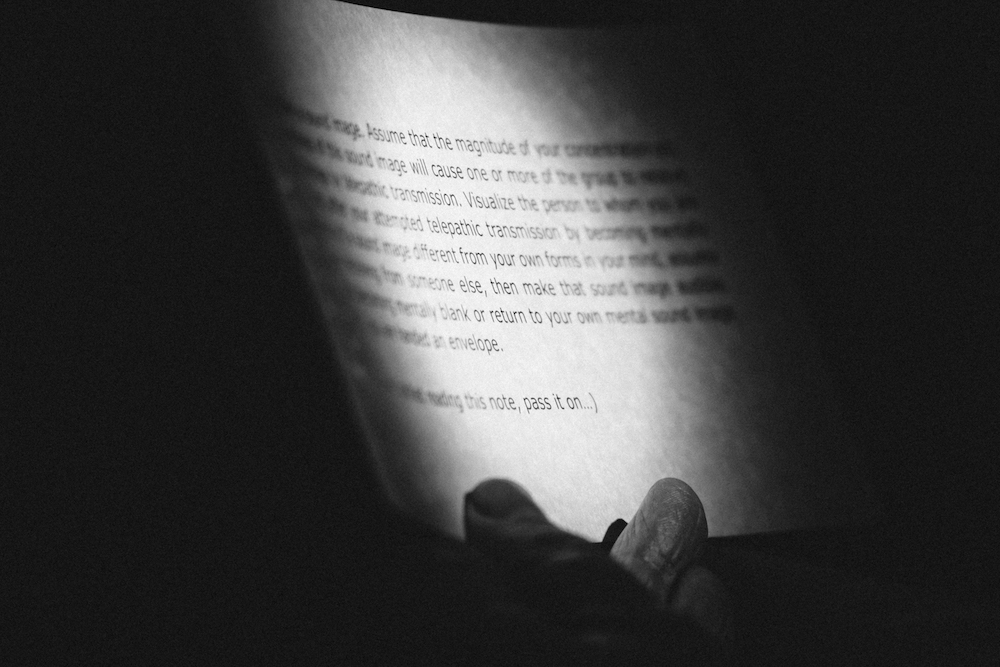 image. Assume that the magnitude of your concentration
of the sound image will cause one or more of the group to
telepathic transmission. Visualize the person to whom you are
your attempted telepathic transmission by becoming mentally
sound image different from your own forms in your mind,
from someone else, then make that sound image audible.
mentally blank or return to your own mental sound image
handed an envelope.
reading this note, pass it on...)